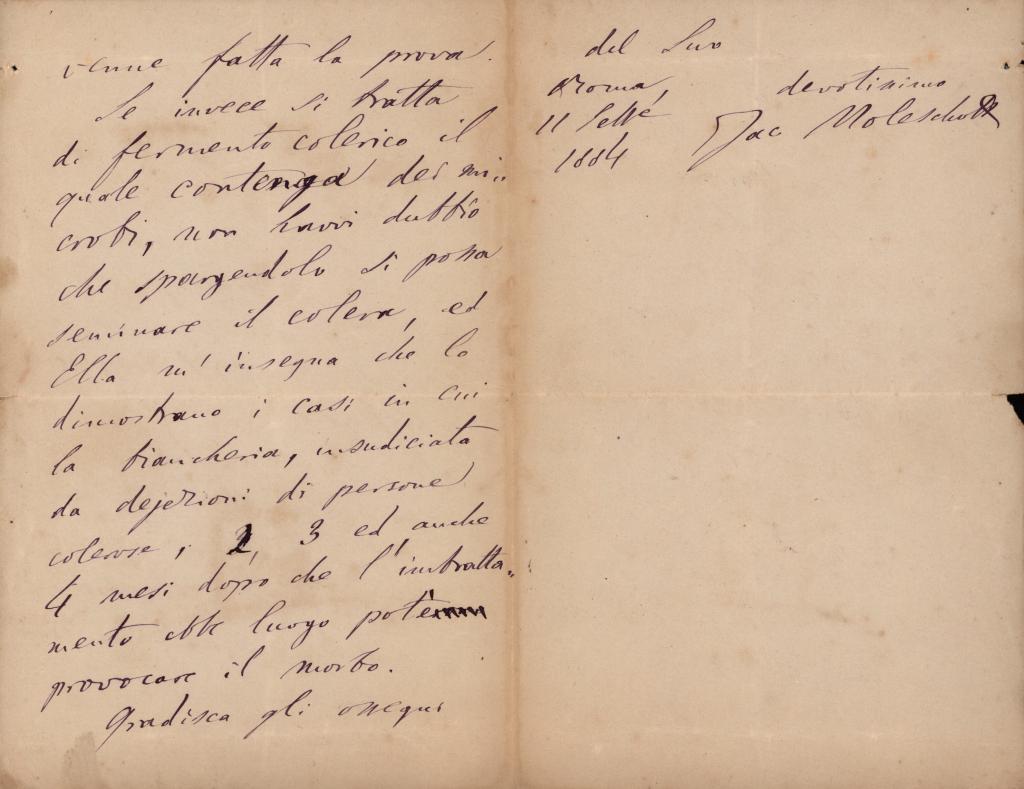 venne fatta la prova.
Se invece si tratta
di fermento colerico il
quale contenga dei mi..
crobi, non havvi dubbio
che spargendolo si possa
seminare il colera, ed
Ella m'insegna che lo
dimostrano i casi in cui
la biancheria, insudiciata
da dejezioni di persone
colerose, 2, 3 ed anche
4 mesi dopo che l'imbratta..
mento ebbe luogo potè
provocare il morbo.
Gradisca gli ossequi
del Suo
Roma,
devotissimo
11 Sette
Jac Moleschott
1884